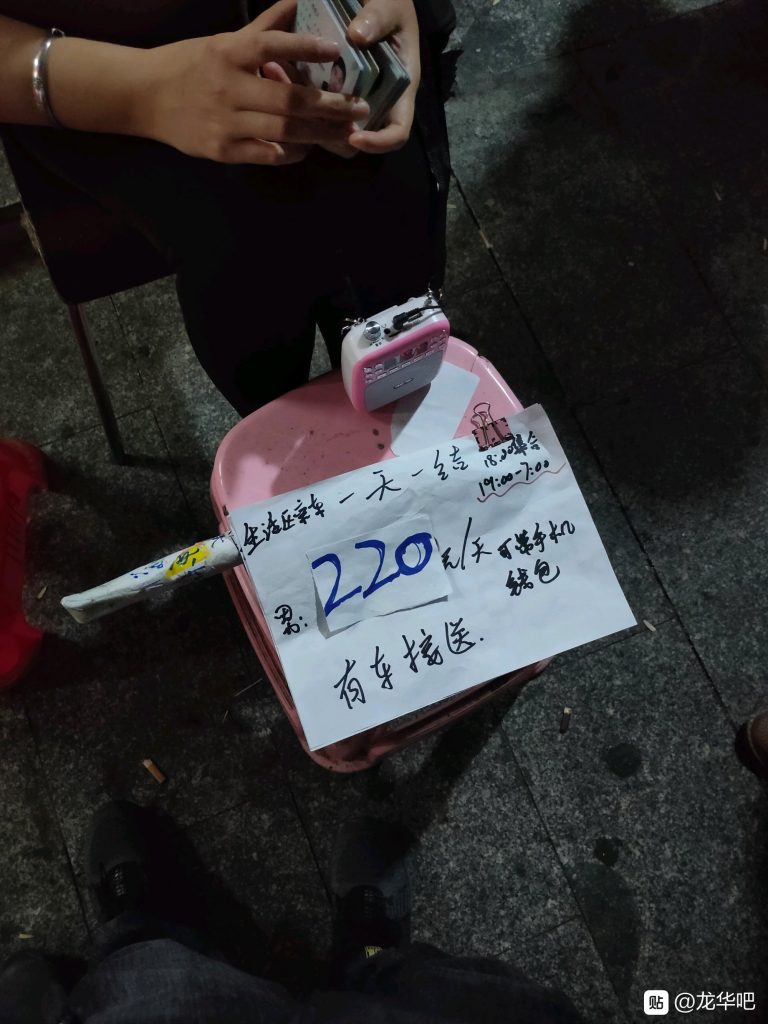 生活区乘车 一天一结 18:20集合
19:00-7:00
男: 220元/天 可带手机
钱包
有车接送.
贴 @龙华吧